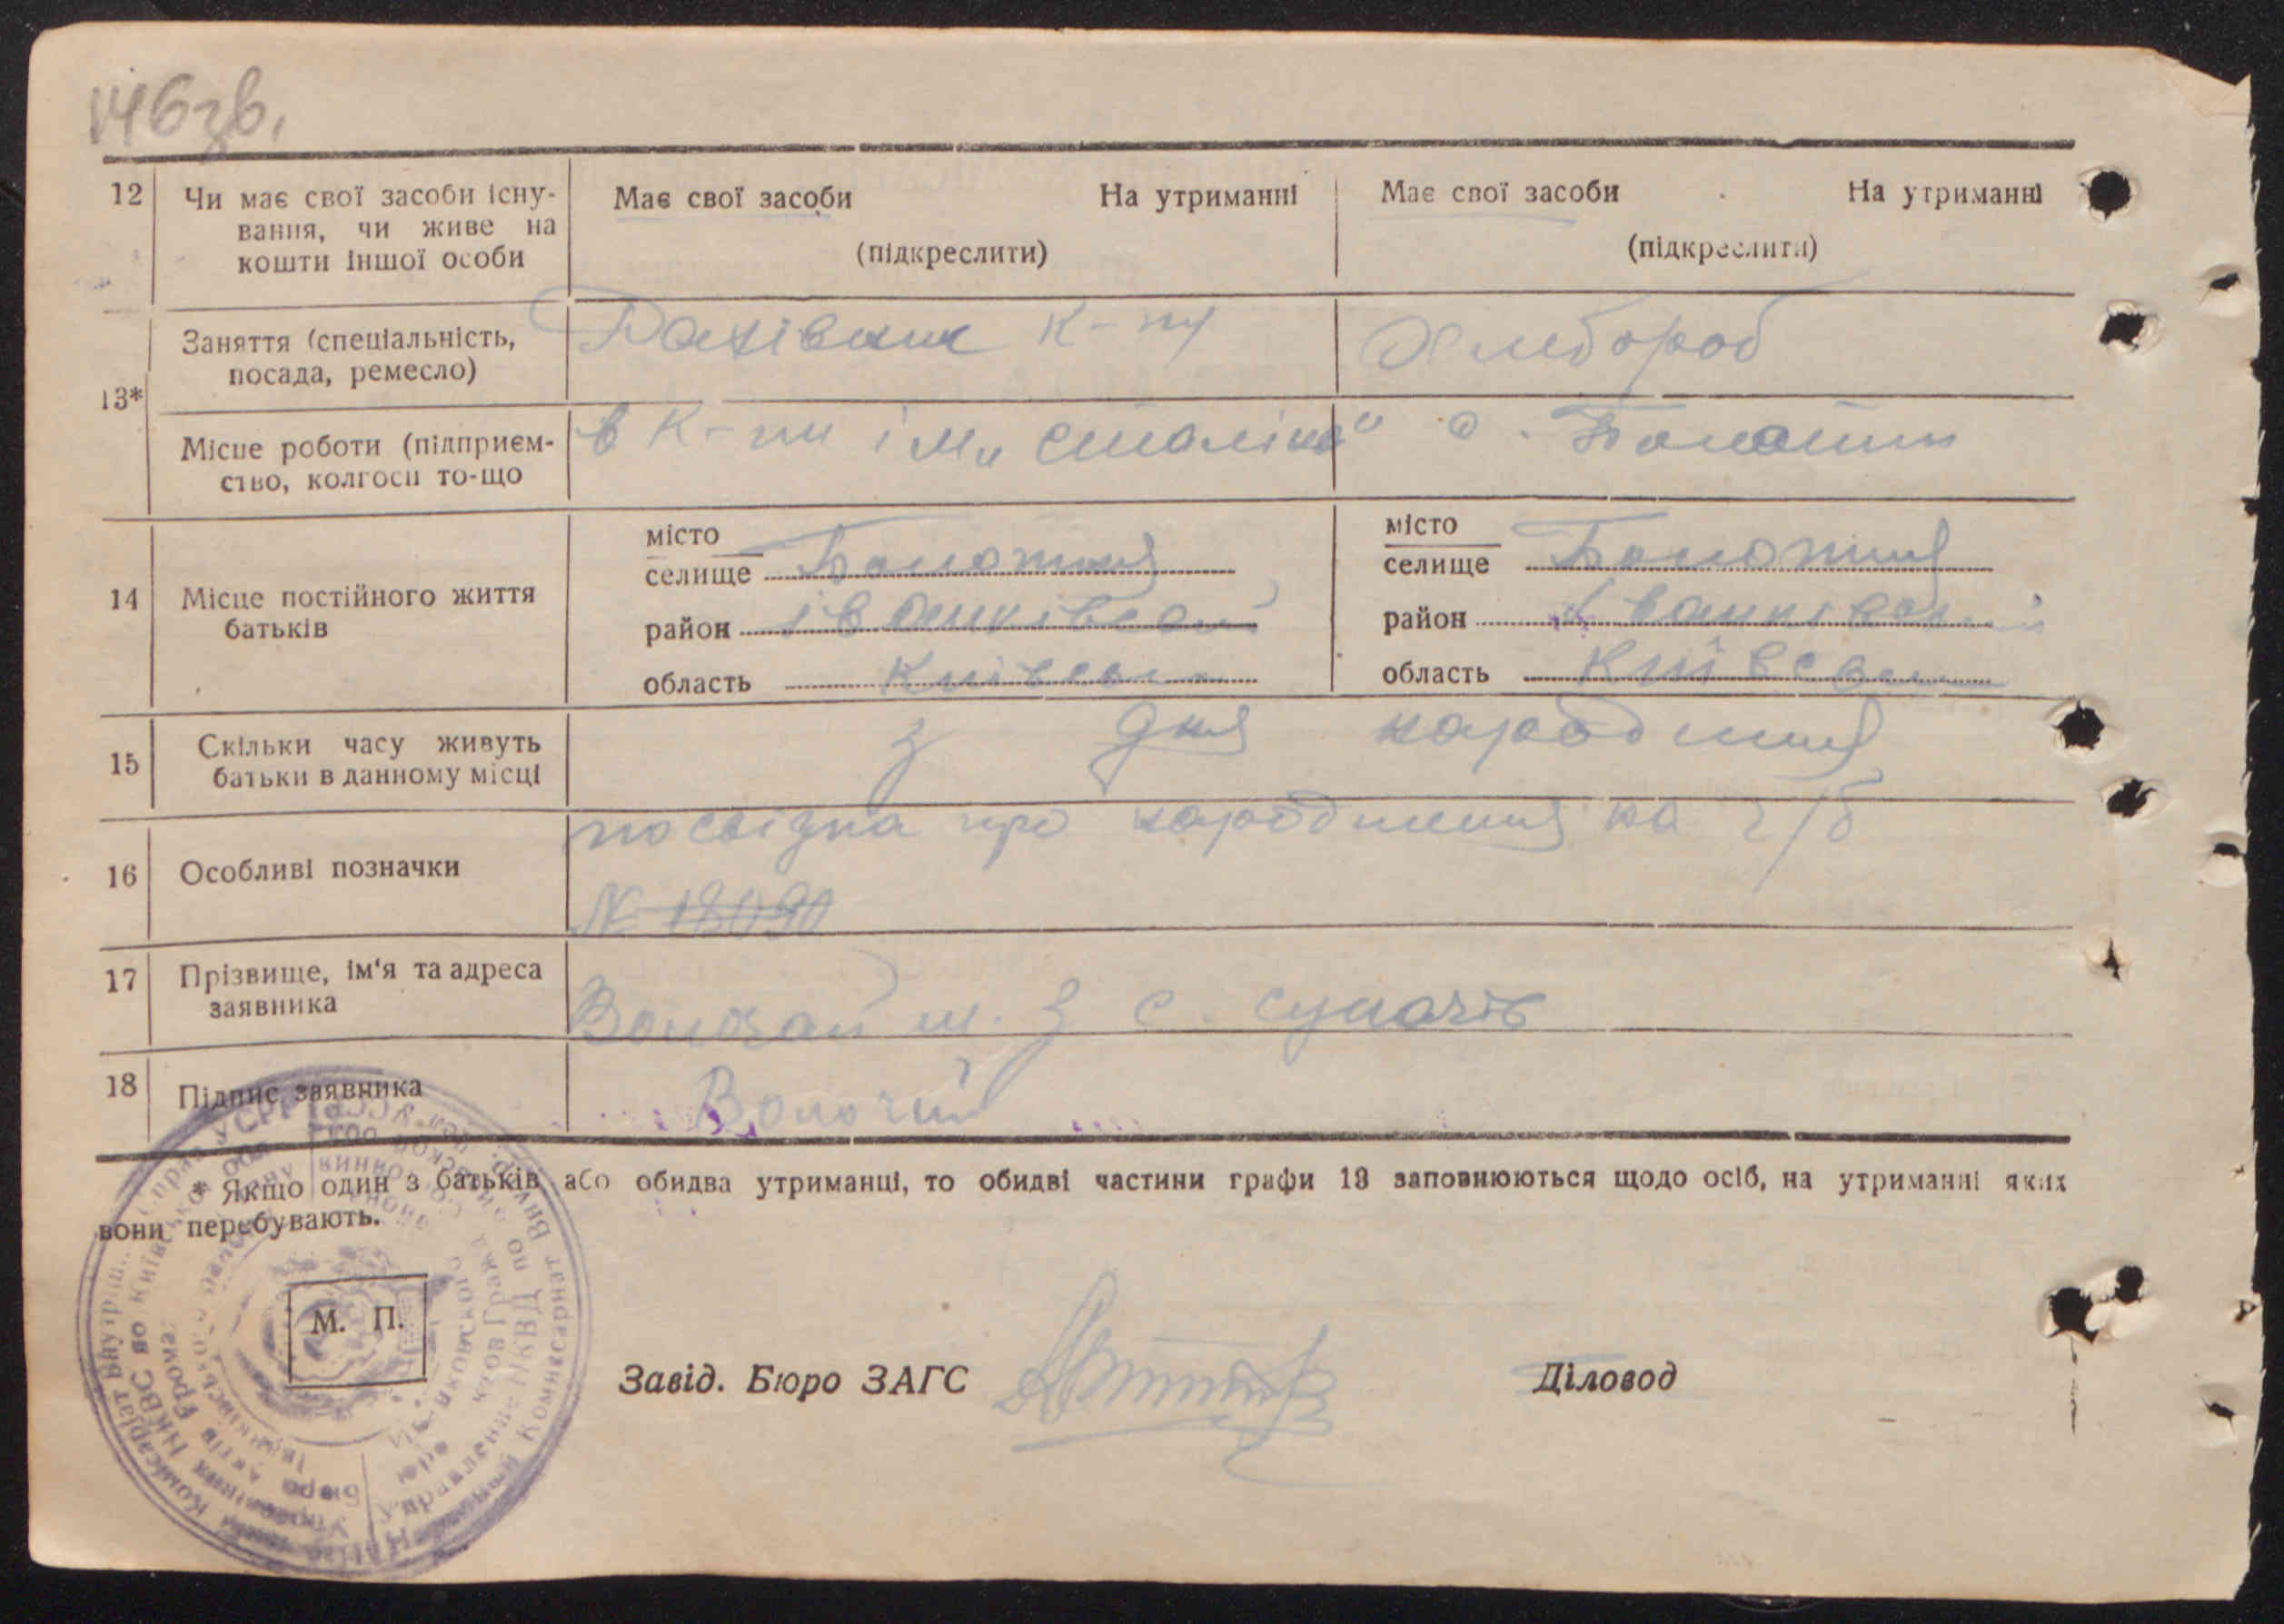 146зв.
12 Чи має свої засоби існу-
вання, чи живе на
кошти іншої особи
Має свої засоби На утриманні
(підкреслити)
Має свої засоби На утриманні
(підкреслити)
13*
Заняття (спеціальність,
посада, ремесло)
Рахівник к-пу
Хлебороб
Місце роботи (підприєм-
ство, колгосп то-що
в к-пи ім „Сталіна" с.
14 Місце постійного життя
батьків
місто
селище Болотня
район іванківский
область Київськ
місто
селище Болотня
район іванківский
область Київськ
15 Скільки часу живуть
батьки в данному місці
з дня народження
16 Особливі позначки
посвідка про народження на г/б
№ 18090
17 Прізвище, ім'я та адреса
заявника
Волочай ш. З с. Сукачів
18 Підпис заявника
* Якщо один з батьків або обидва утриманці, то обидві частини графи 13 заповнюються щодо осіб, на утриманні яких
вони перебувають.
М. П.
Завід. Бюро ЗАГС
Діловод